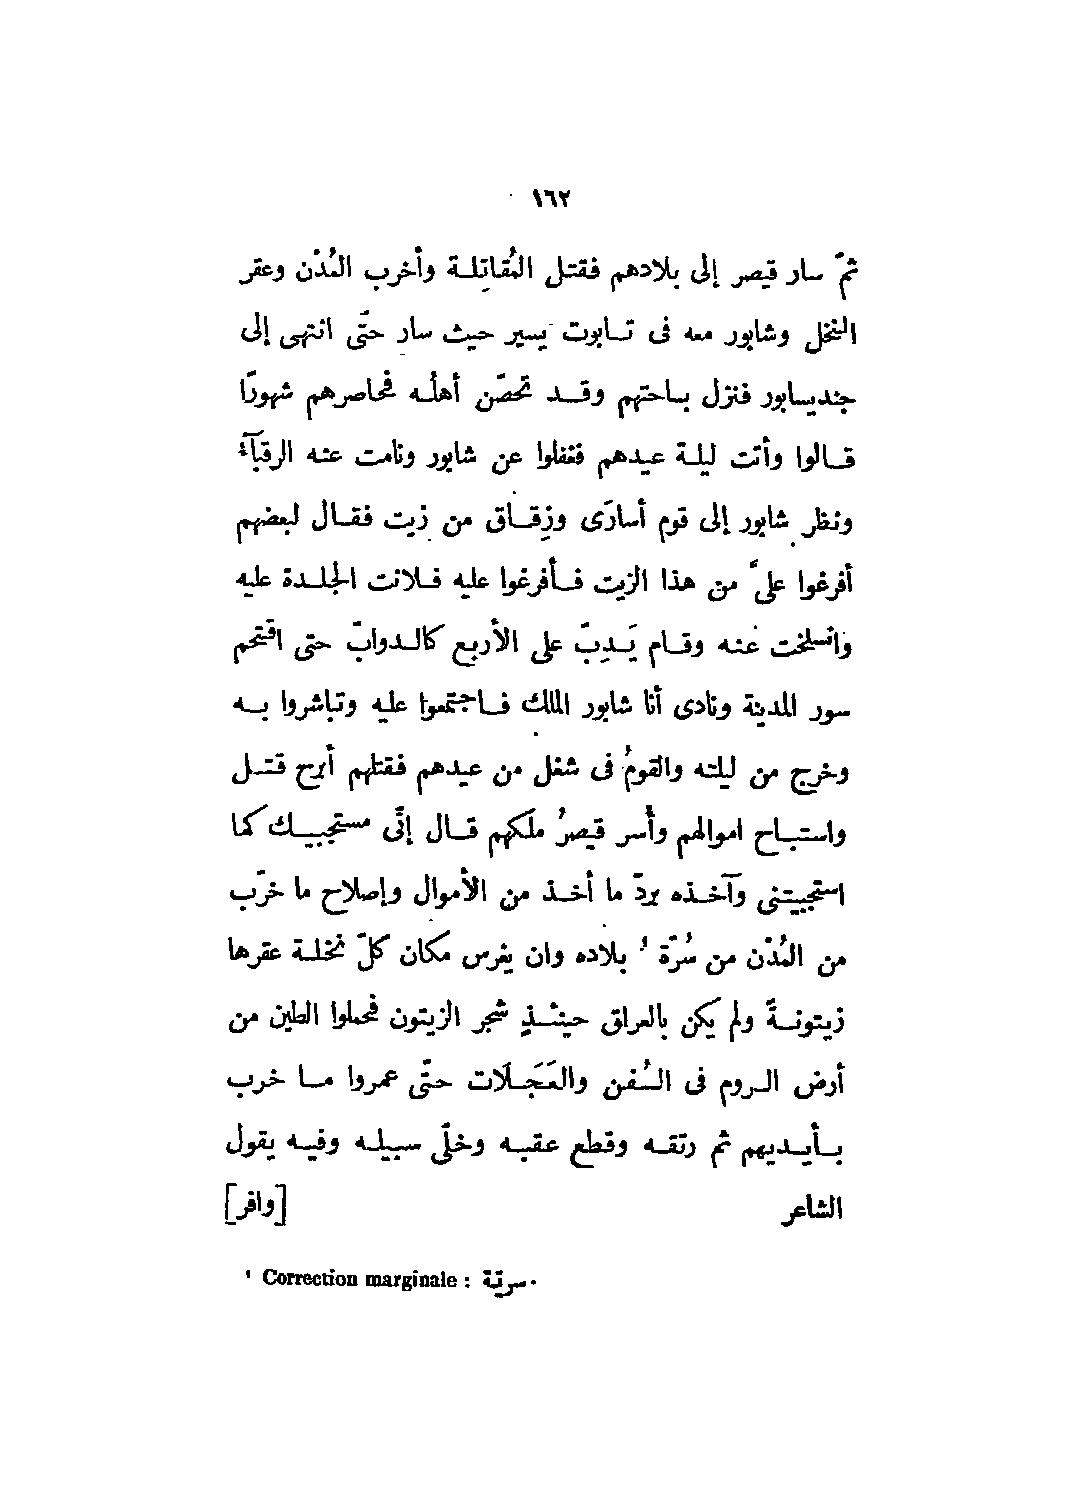 ١٦٢
ثمّ سار قيصر إلى بلادهم فقتل المُقاتِلة وأخرب المُدْن وعقر
النخل وشابور معه فى تابوت يسير حيث سار حتَّى انتهى إلى
جنديسابور فنزل بساحتهم وقد تحصّن أهله فحاصرهم شهورًا
قالوا وأتت ليلة عيدهم فغفلوا عن شابور ونامت عنه الرقبآء
ونظر شابور إلى قوم أسارَى وزِقاق من زيت فقال لبعضهم
أفرغوا علىَّ من هذا الزيت فأفرغوا عليه فلانت الجلدة عليه
وانسلخت عنه وقام يَدِبّ على الأربع كالدوابّ حتى اقتحم
سور المدينة ونادى أنا شابور الملك فاجتمعوا عليه وتباشروا به
وخرج من ليلته والقومُ فى شغل من عيدهم فقتلهم أبرح قتل
واستباح اموالهم وأسر قيصرُ ملكهم قال إنَّى مستجيبك كما
استجيبتنى وآخذه بردّ ما أخذ من الأموال وإصلاح ما خرّب
من المُدْن من سُرَّة ¹ بلاده وان يغرس مكان كلّ نخلة عقرها
زيتونةً ولم يكن بالعراق حينئذٍ شجر الزيتون فحملوا الطين من
أرض الروم فى السُفن والعَجَلات حتَّى عمروا ما خرب
بأيديهم ثم رتقه وقطع عقبه وخلّى سبيله وفيه يقول
الشاعر [وافر]
¹ Correction marginale : سرقة.